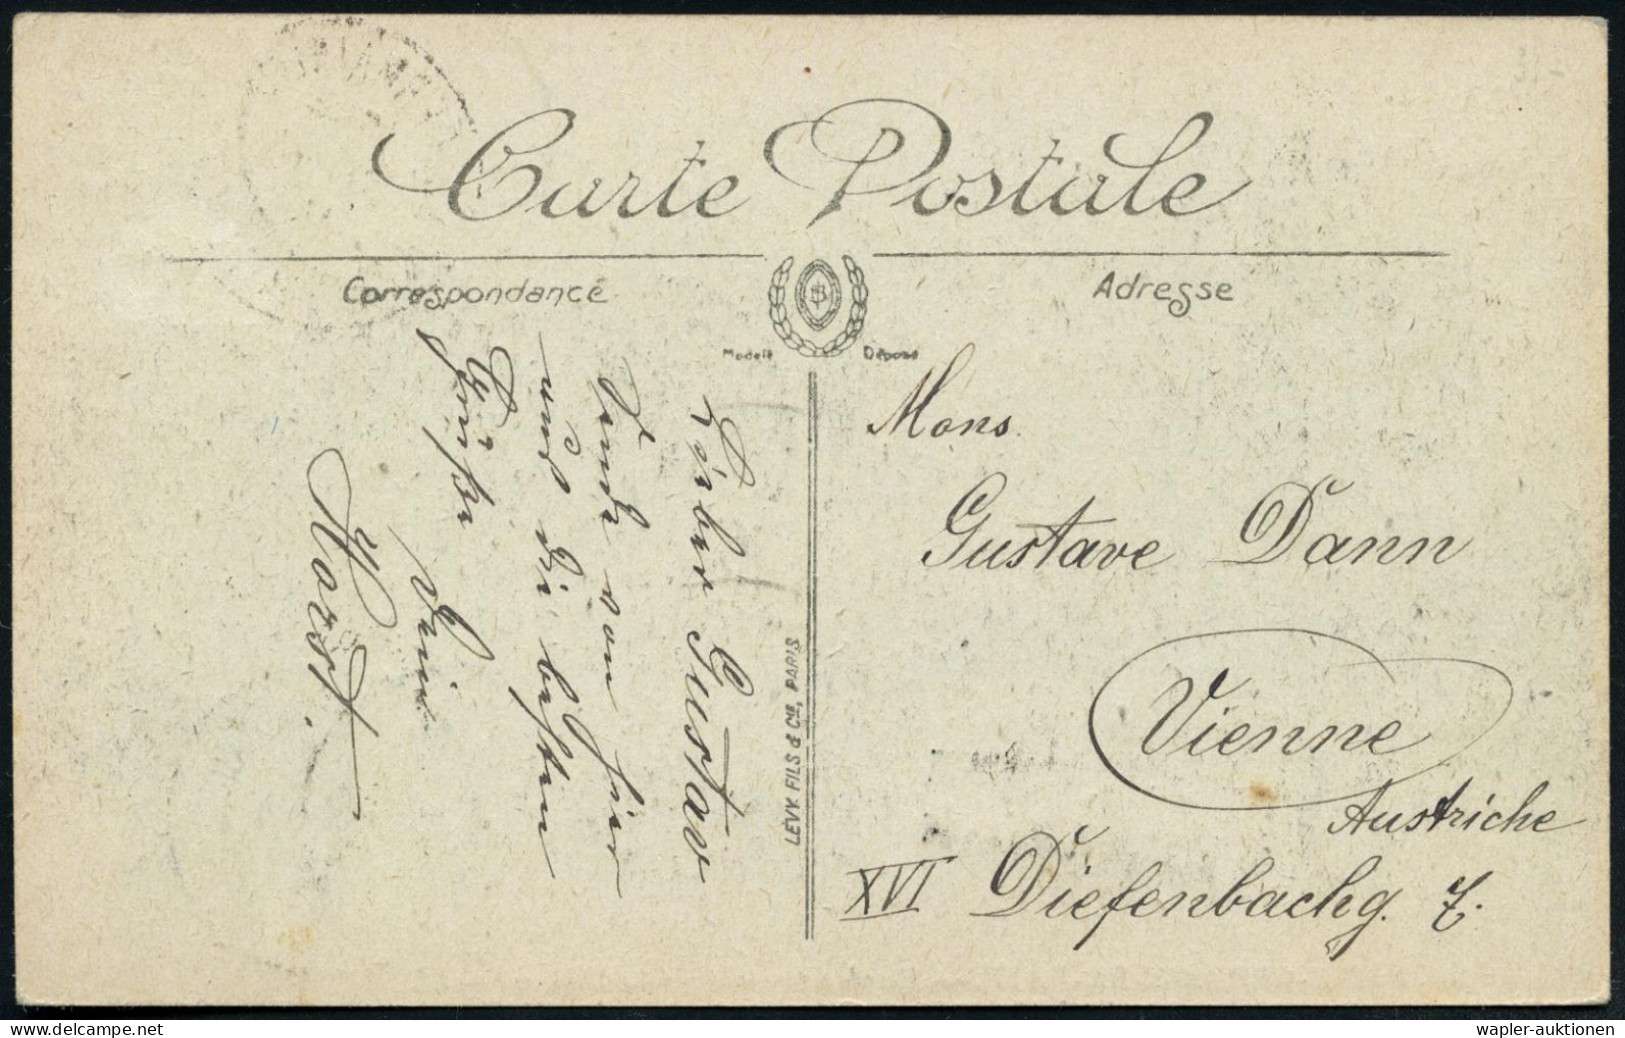 Carte Postale
Correspondance
Adresse
Modele Déposé
Lieber Gustav
sende von hier
und die besten
Grüße
Dein
Horst.
LEVY FILS & Cie, PARIS
Mons.
Gustave Dann
Vienne
Austriche
XVI Diefenbachg. 7.
delcampe.net
wapler-auktionen